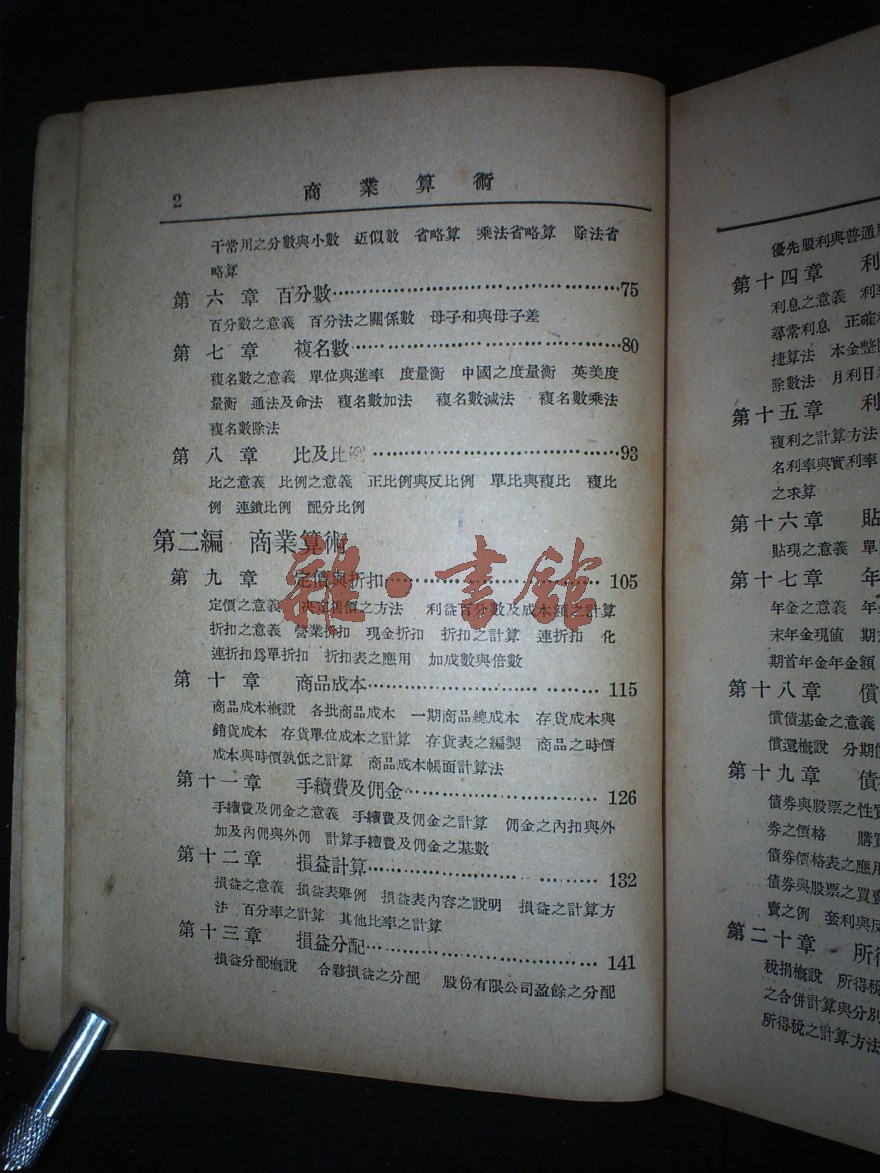 2
商業算術
干常用之分數與小數 近似數 省略算 乘法省略算 除法省
略算
第六章 百分數 75
百分數之意義 百分法之關係數 母子和與母子差
第七章 複名數 80
複名數之意義 單位與進率 度量衡 中國之度量衡 英美度
量衡 通法及命法 複名數加法 複名數減法 複名數乘法
複名數除法
第八章 比及比例 93
比之意義 比例之意義 正比例與反比例 單比與複比 複比
例 連鎖比例 配分比例
第二編 商業算術
第九章 定價與折扣 105
定價之意義 決定售價之方法 利益百分數及成本額之計算
折扣之意義 營業折扣 現金折扣 折扣之計算 連折扣 化
連折扣爲單折扣 折扣表之應用 加成數與倍數
第十章 商品成本 115
商品成本概說 各批商品成本 一期商品總成本 存貨成本與
銷貨成本 存貨單位成本之計算 存貨表之編製 商品之時價
成本與時價孰低之計算 商品成本帳面計算法
第十一章 手續費及佣金 126
手續費及佣金之意義 手續費及佣金之計算 佣金之內扣與外
加及內佣與外佣 計算手續費及佣金之基數
第十二章 損益計算 132
損益之意義 損益表舉例 損益表內容之說明 損益之計算方
法 百分率之計算 其他比率之計算
第十三章 損益分配 141
損益分配概說 合夥損益之分配 股份有限公司盈餘之分配
雜·書館
優先股利與普通
第十四章 利
利息之意義 利
尋常利息 正確
捷算法 本金整
除數法 月利日
第十五章 利
複利之計算方法
名利率與實利率
之求算
第十六章 貼
貼現之意義 單
第十七章 年
年金之意義 年
末年金現值 期
期首年金年金額
第十八章 償
償債基金之意義
償還概說 分期
第十九章 債
債券與股票之性
券之價格 購
債券價格表之應
債券與股票之買
賣之例 套利與
第二十章 所
稅捐概說 所得稅
之合併計算與分別
所得稅之計算方法